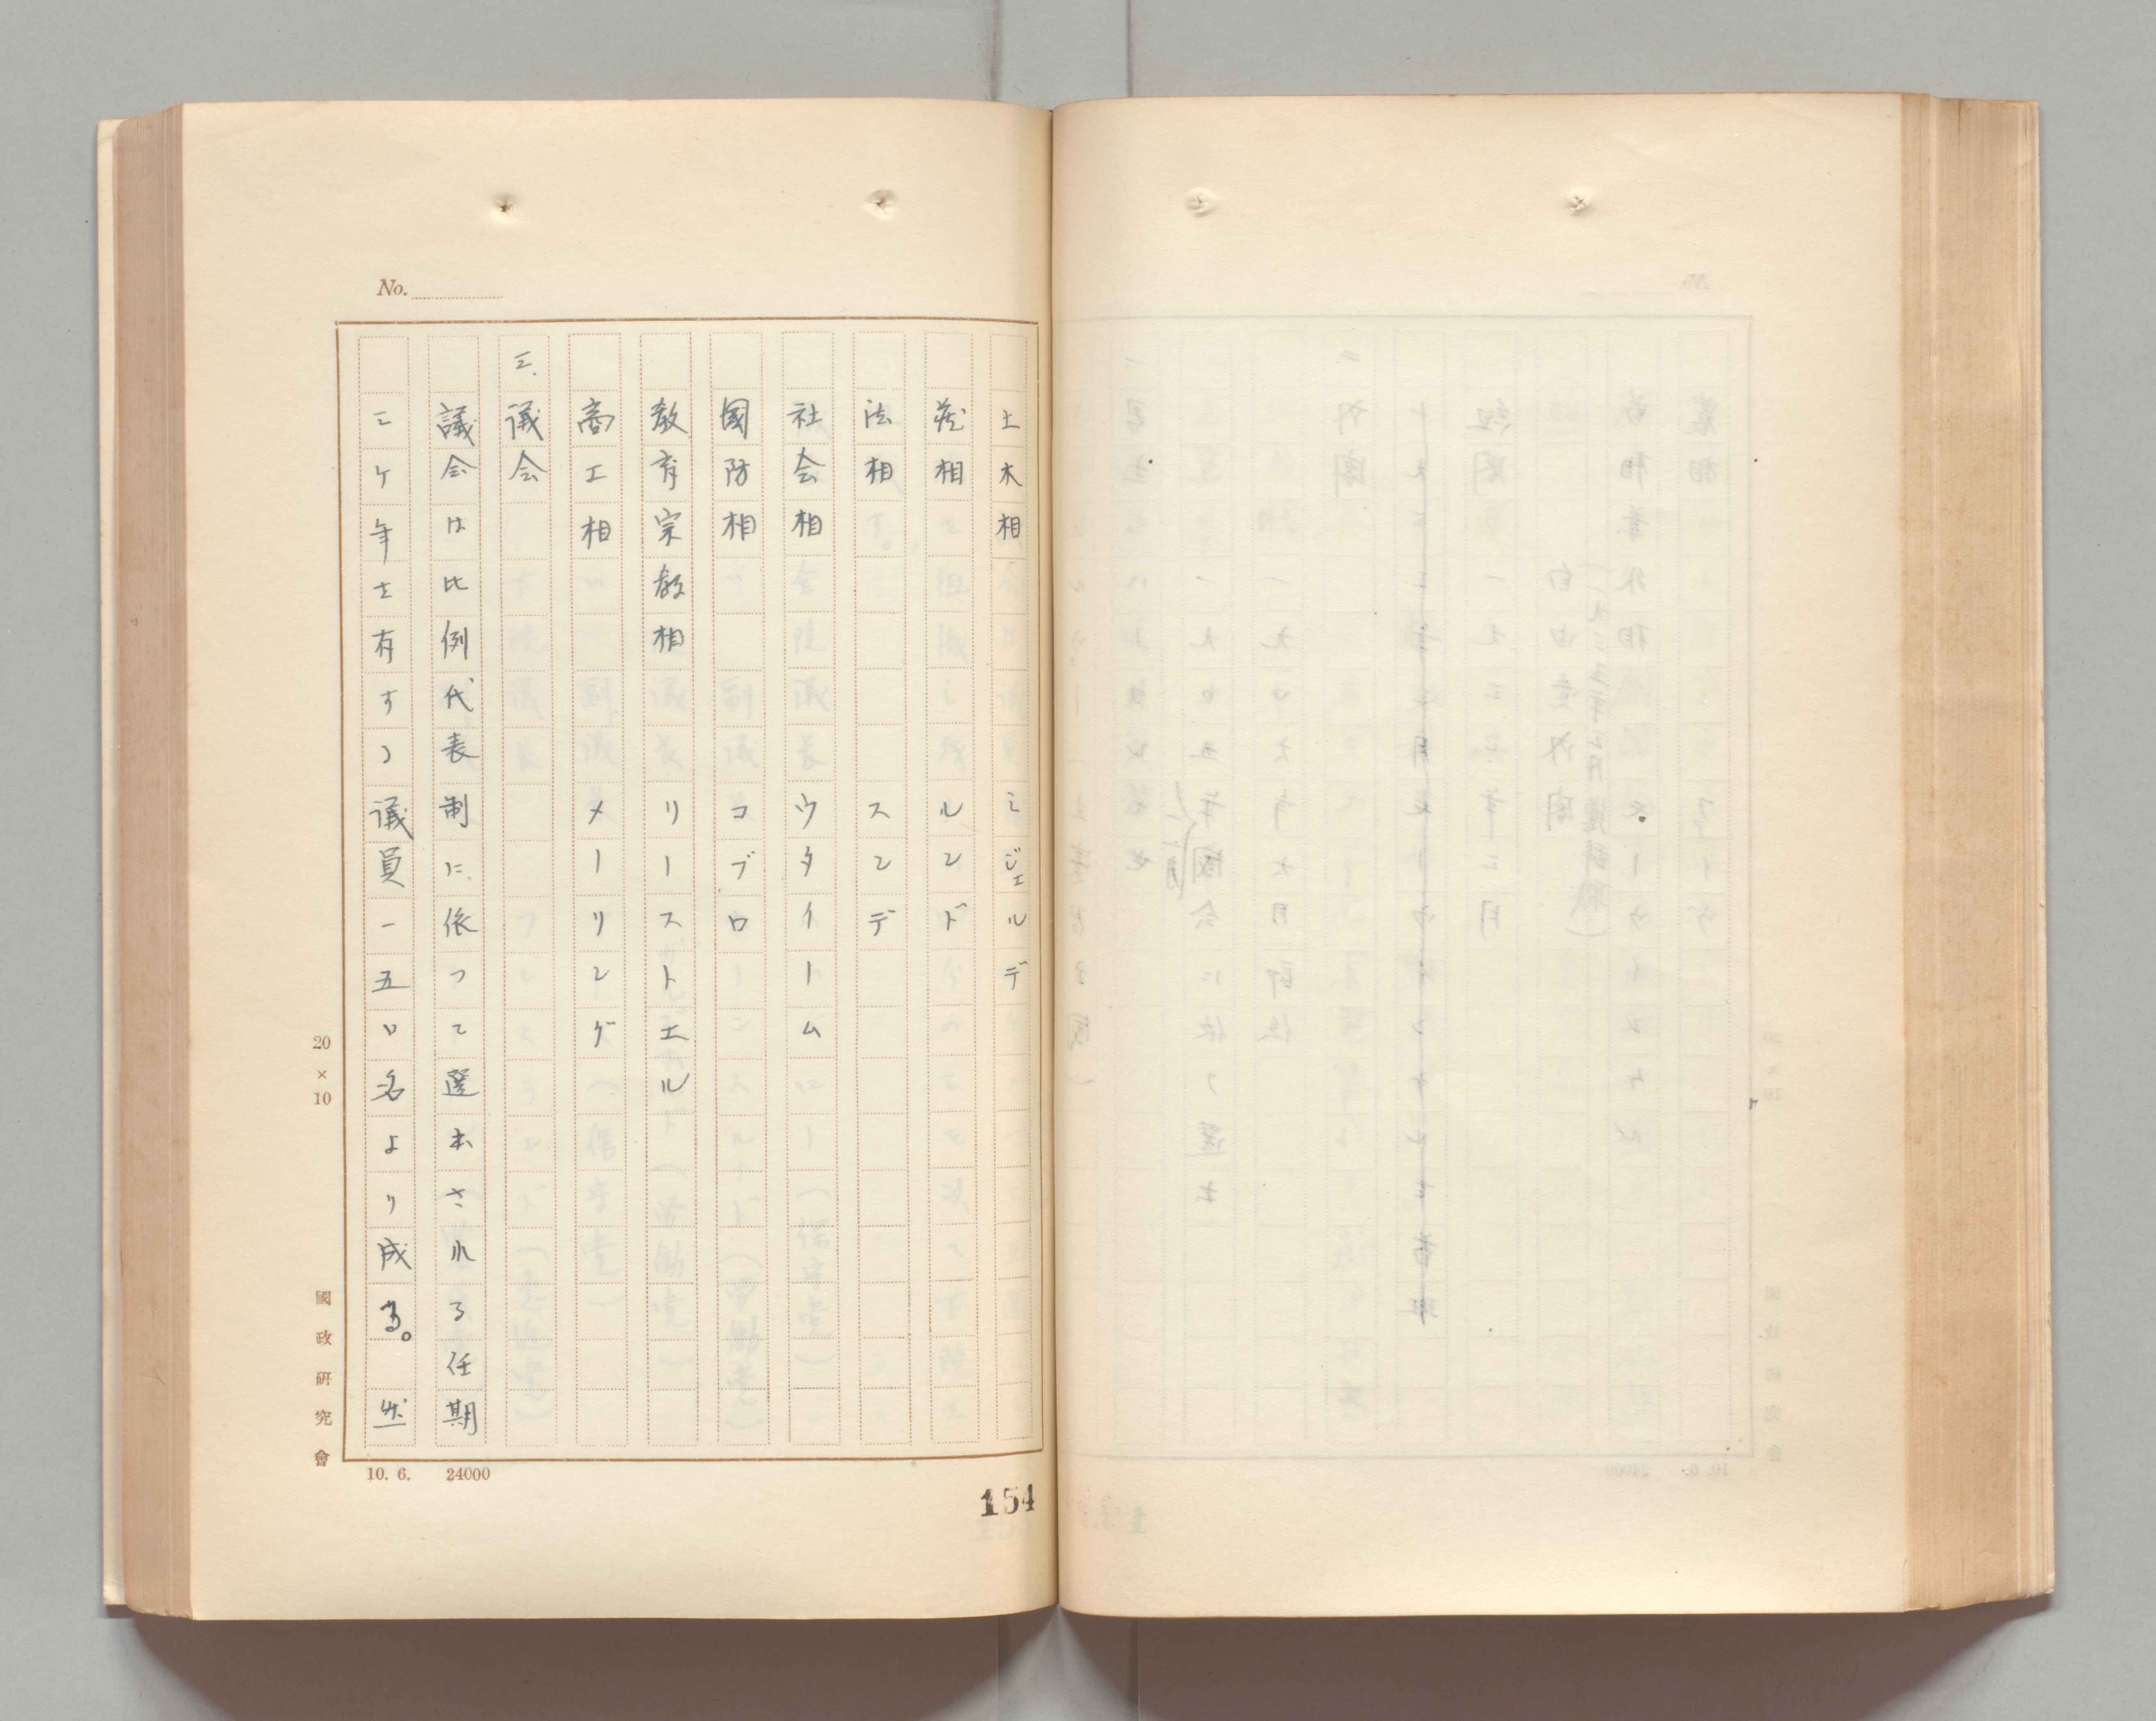 No.
土木相 ミジェルデ
蔵相 ルンド
法相 スンデ
社会相 ウタイーム
國防相 コブロ
教育宗教相 リーストエル
商工相 メーリング
三.議会
議会は比例代表制に依つて選出される任期
三ケ年を有する議員一五〇名より成る。然
20×10
國政研究會
10. 6. 24000
154